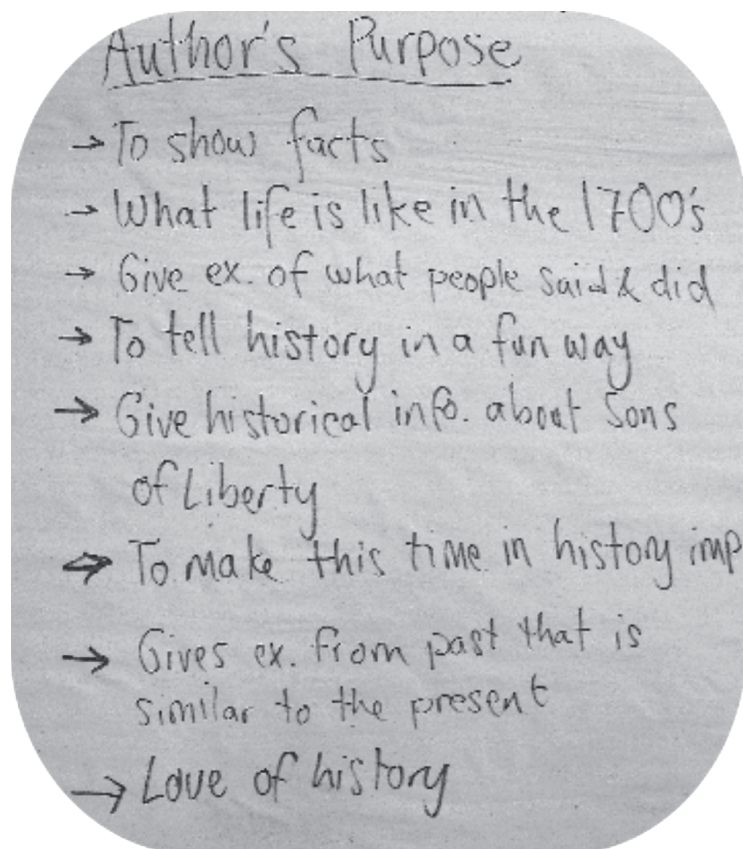 Author's Purpose
→ To show facts
→ What life is like in the 1700's
→ Give ex. of what people said & did
→ To tell history in a fun way
→ Give historical info. about Sons
of Liberty
→ To make this time in history imp
→ Gives ex. from past that is
similar to the present
→ Love of history